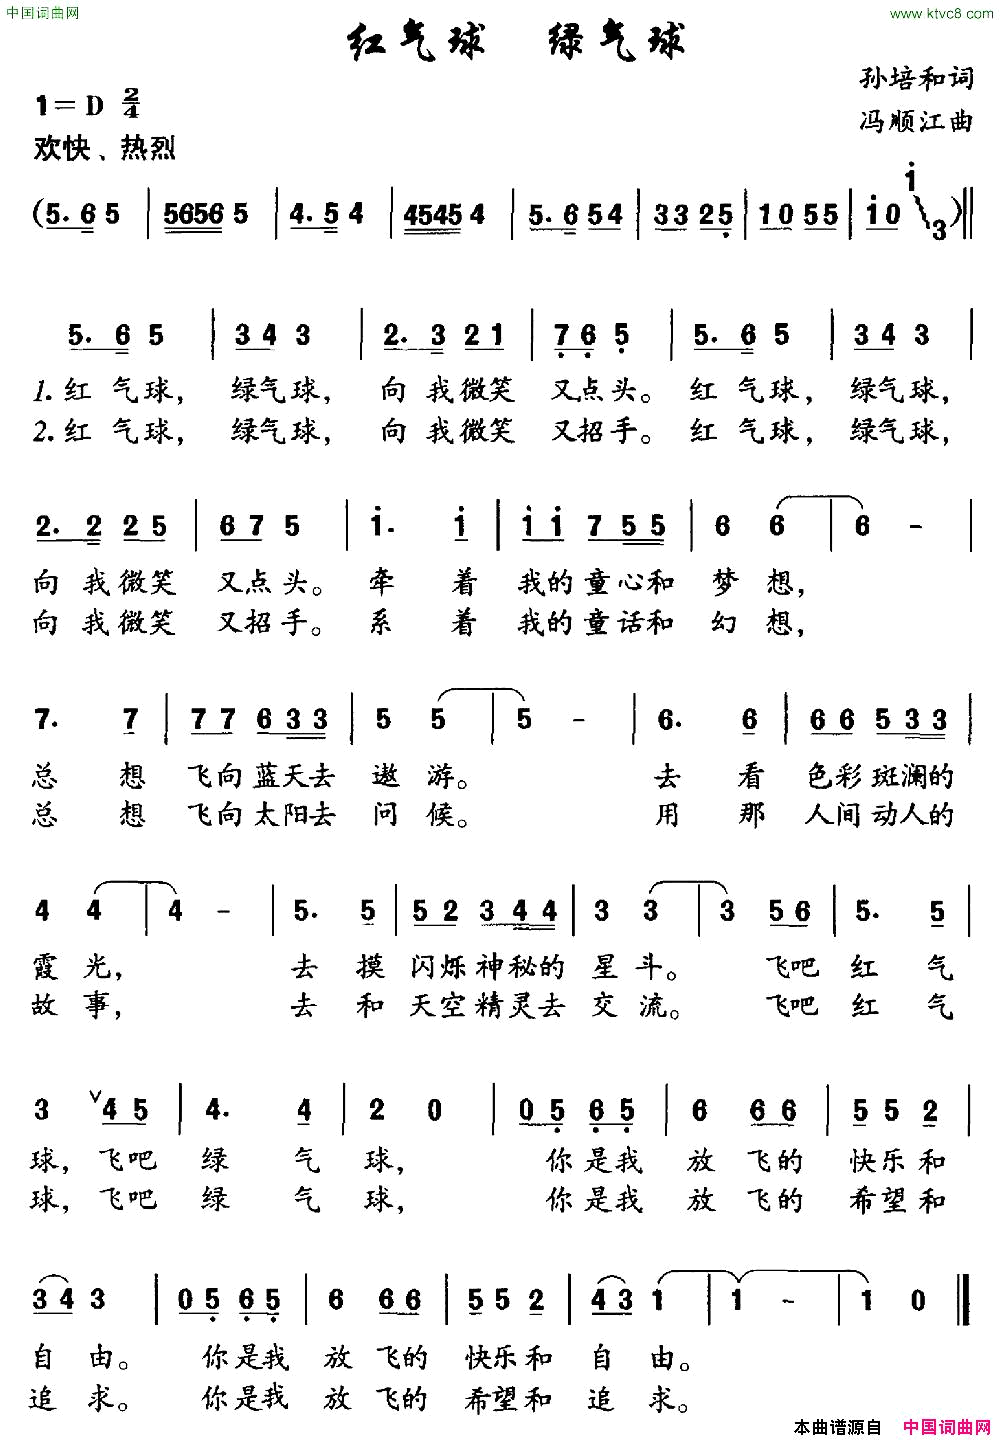 中国词曲网 www.ktvc8.com
红气球 绿气球
孙培和词
1=D 2/4
冯顺江曲
欢快、热烈
(5. 6 5 | 5656 5 | 4. 5 4 | 4545 4 | 5. 6 54 | 33 25 | 10 55 | i0 i 3)‖
5. 6 5 | 34 3 | 2. 3 21 | 76 5 | 5. 6 5 | 34 3 |
1.红 气球，绿气球，向 我微笑 又点头。红 气球，绿气球，
2.红 气球，绿气球，向 我微笑 又招手。红 气球，绿气球，
2. 2 25 | 67 5 | i. i | ii 755 | 6 6 | 6 - |
向 我微笑 又点头。牵 着 我的童心和 梦 想，
向 我微笑 又招手。系 着 我的童话和 幻 想，
7. 7 | 77 633 | 5 5 | 5 - | 6. 6 | 66 533 |
总 想 飞向蓝天去 遨 游。去 看 色彩斑澜的
总 想 飞向太阳去 问 候。用 那 人间动人的
4 4 | 4 - | 5. 5 | 52 344 | 3 3 | 3 56 | 5. 5 |
霞 光，去 摸 闪烁神秘的 星 斗。飞吧 红 气
故 事，去 和 天空精灵去 交 流。飞吧 红 气
3 ∨45 | 4. 4 | 2 0 | 05 65 | 6 66 | 55 2 |
球，飞吧 绿 气 球，你是我 放 飞的 快乐和
球，飞吧 绿 气 球，你是我 放 飞的 希望和
34 3 | 05 65 | 6 66 | 55 2 | 43 1 | 1 - | 1 0 ‖
自 由。你是我 放 飞的 快乐和 自 由。
追 求。你是我 放 飞的 希望和 追 求。
本曲谱源自 中国词曲网